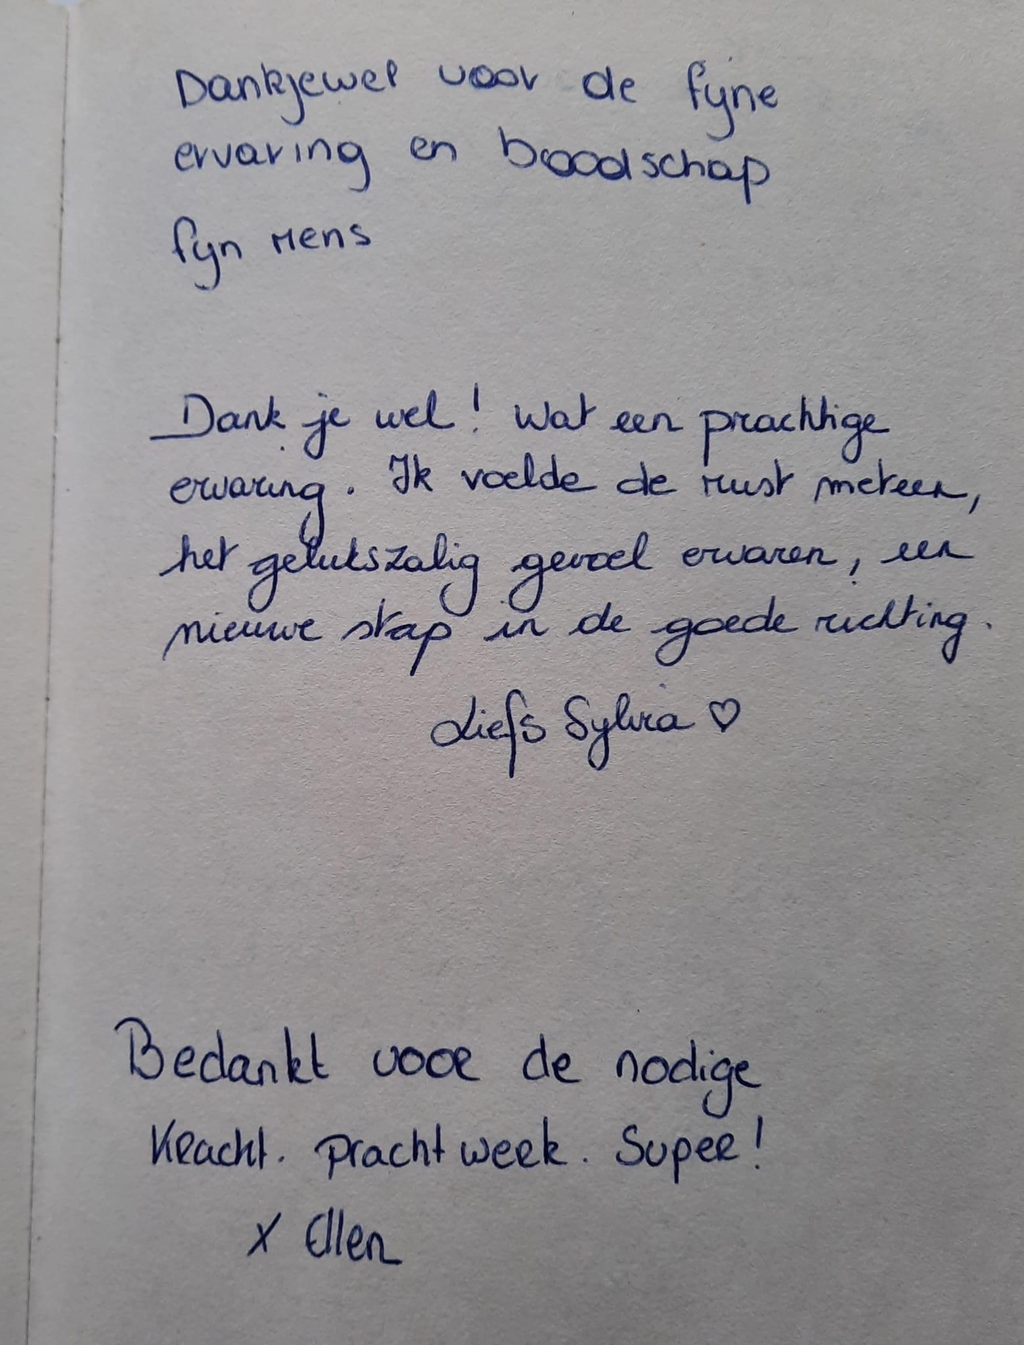 Dankjewel voor de fijne
ervaring en boodschap
fijn mens
Dank je wel! Wat een prachtige
ervaring. Ik voelde de rust meteen,
het gelukszalig gevoel ervaren, een
nieuwe stap in de goede richting.
Liefs Sylvia ♡
Bedankt voor de nodige
Kracht. Pracht week. Super!
x Ellen